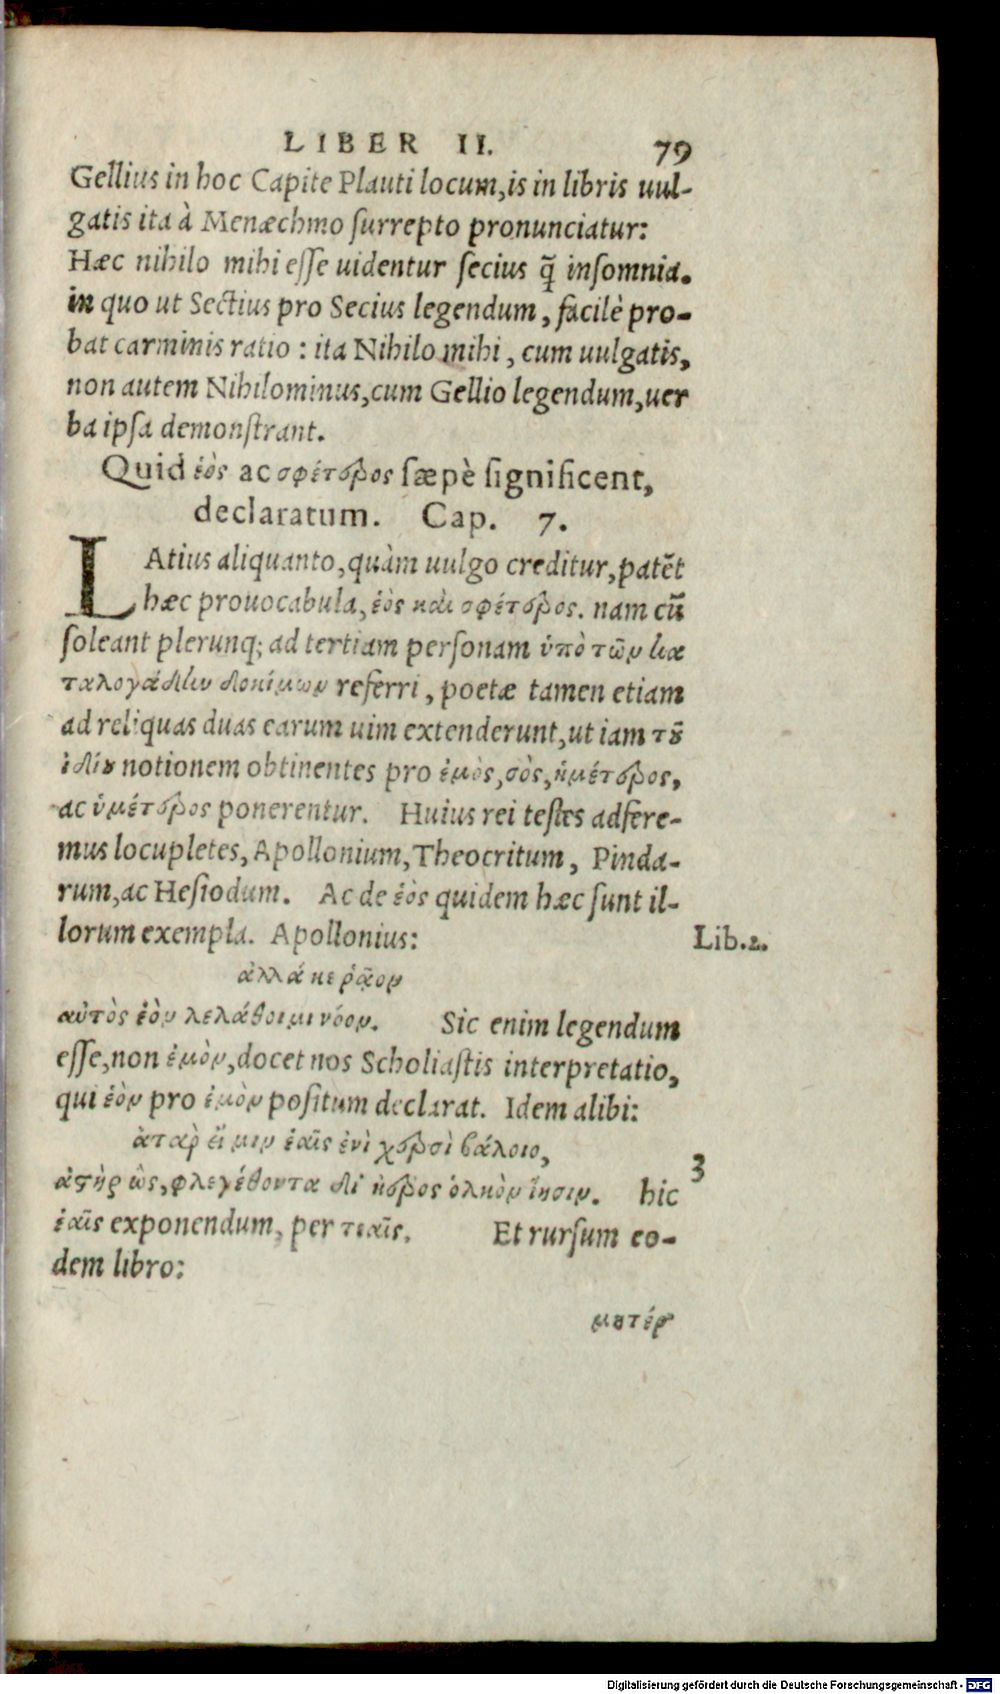 LIBER II. 79
Gellius in hoc Capite Plauti locum, is in libris uul-
gatis ita à Menæchmo surrepto pronunciatur:
Hæc nihilo mihi esse uidentur secius q̃ insomnia.
in quo ut Sectius pro Secius legendum, facilè pro-
bat carminis ratio: ita Nihilo mihi, cum uulgatis,
non autem Nihilominus, cum Gellio legendum, uer
ba ipsa demonstrant.
Quid ἑὸς ac σφέτερος sæpè significent,
declaratum. Cap. 7.
LAtius aliquanto, quàm uulgo creditur, patẽt
hæc prouocabula, ἑὸς καὶ σφέτερος. nam cũ
soleant plerunq; ad tertiam personam ὑπὸ τῶν κα
ταλογάδην δοκίμων referri, poetæ tamen etiam
ad reliquas duas earum uim extenderunt, ut iam τοῦ
ἰδίου notionem obtinentes pro ἐμὸς, σὸς, ἡμέτερος,
ac ὑμέτερος ponerentur. Huius rei testes adfere-
mus locupletes, Apollonium, Theocritum, Pinda-
rum, ac Hesiodum. Ac de ἑὸς quidem hæc sunt il-
lorum exempla. Apollonius: Lib. 2.
ἀλλά κε ῥᾷον
αὐτὸς ἑὸν λελάθοιμι νόον. Sic enim legendum
esse, non ἐμὸν, docet nos Scholiastis interpretatio,
qui ἑὸν pro ἐμὸν positum declarat. Idem alibi:
ἀτὰρ εἴ μιν ἑαῖς ἐνὶ χερσὶ βάλοιο, 3
ἀστὴρ ὣς, φλεγέθοντα δι' ἠέρος ὁλκὸν ἵησιν. hic
ἑαῖς exponendum, per τεαῖς. Et rursum eo-
dem libro:
ματέρ
Digitalisierung gefördert durch die Deutsche Forschungsgemeinschaft - DFG